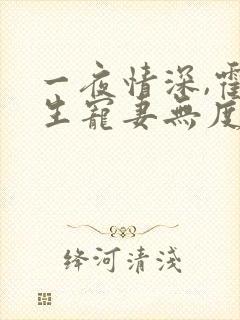 一夜情深,霍
生寵妻無度
绛河清淺